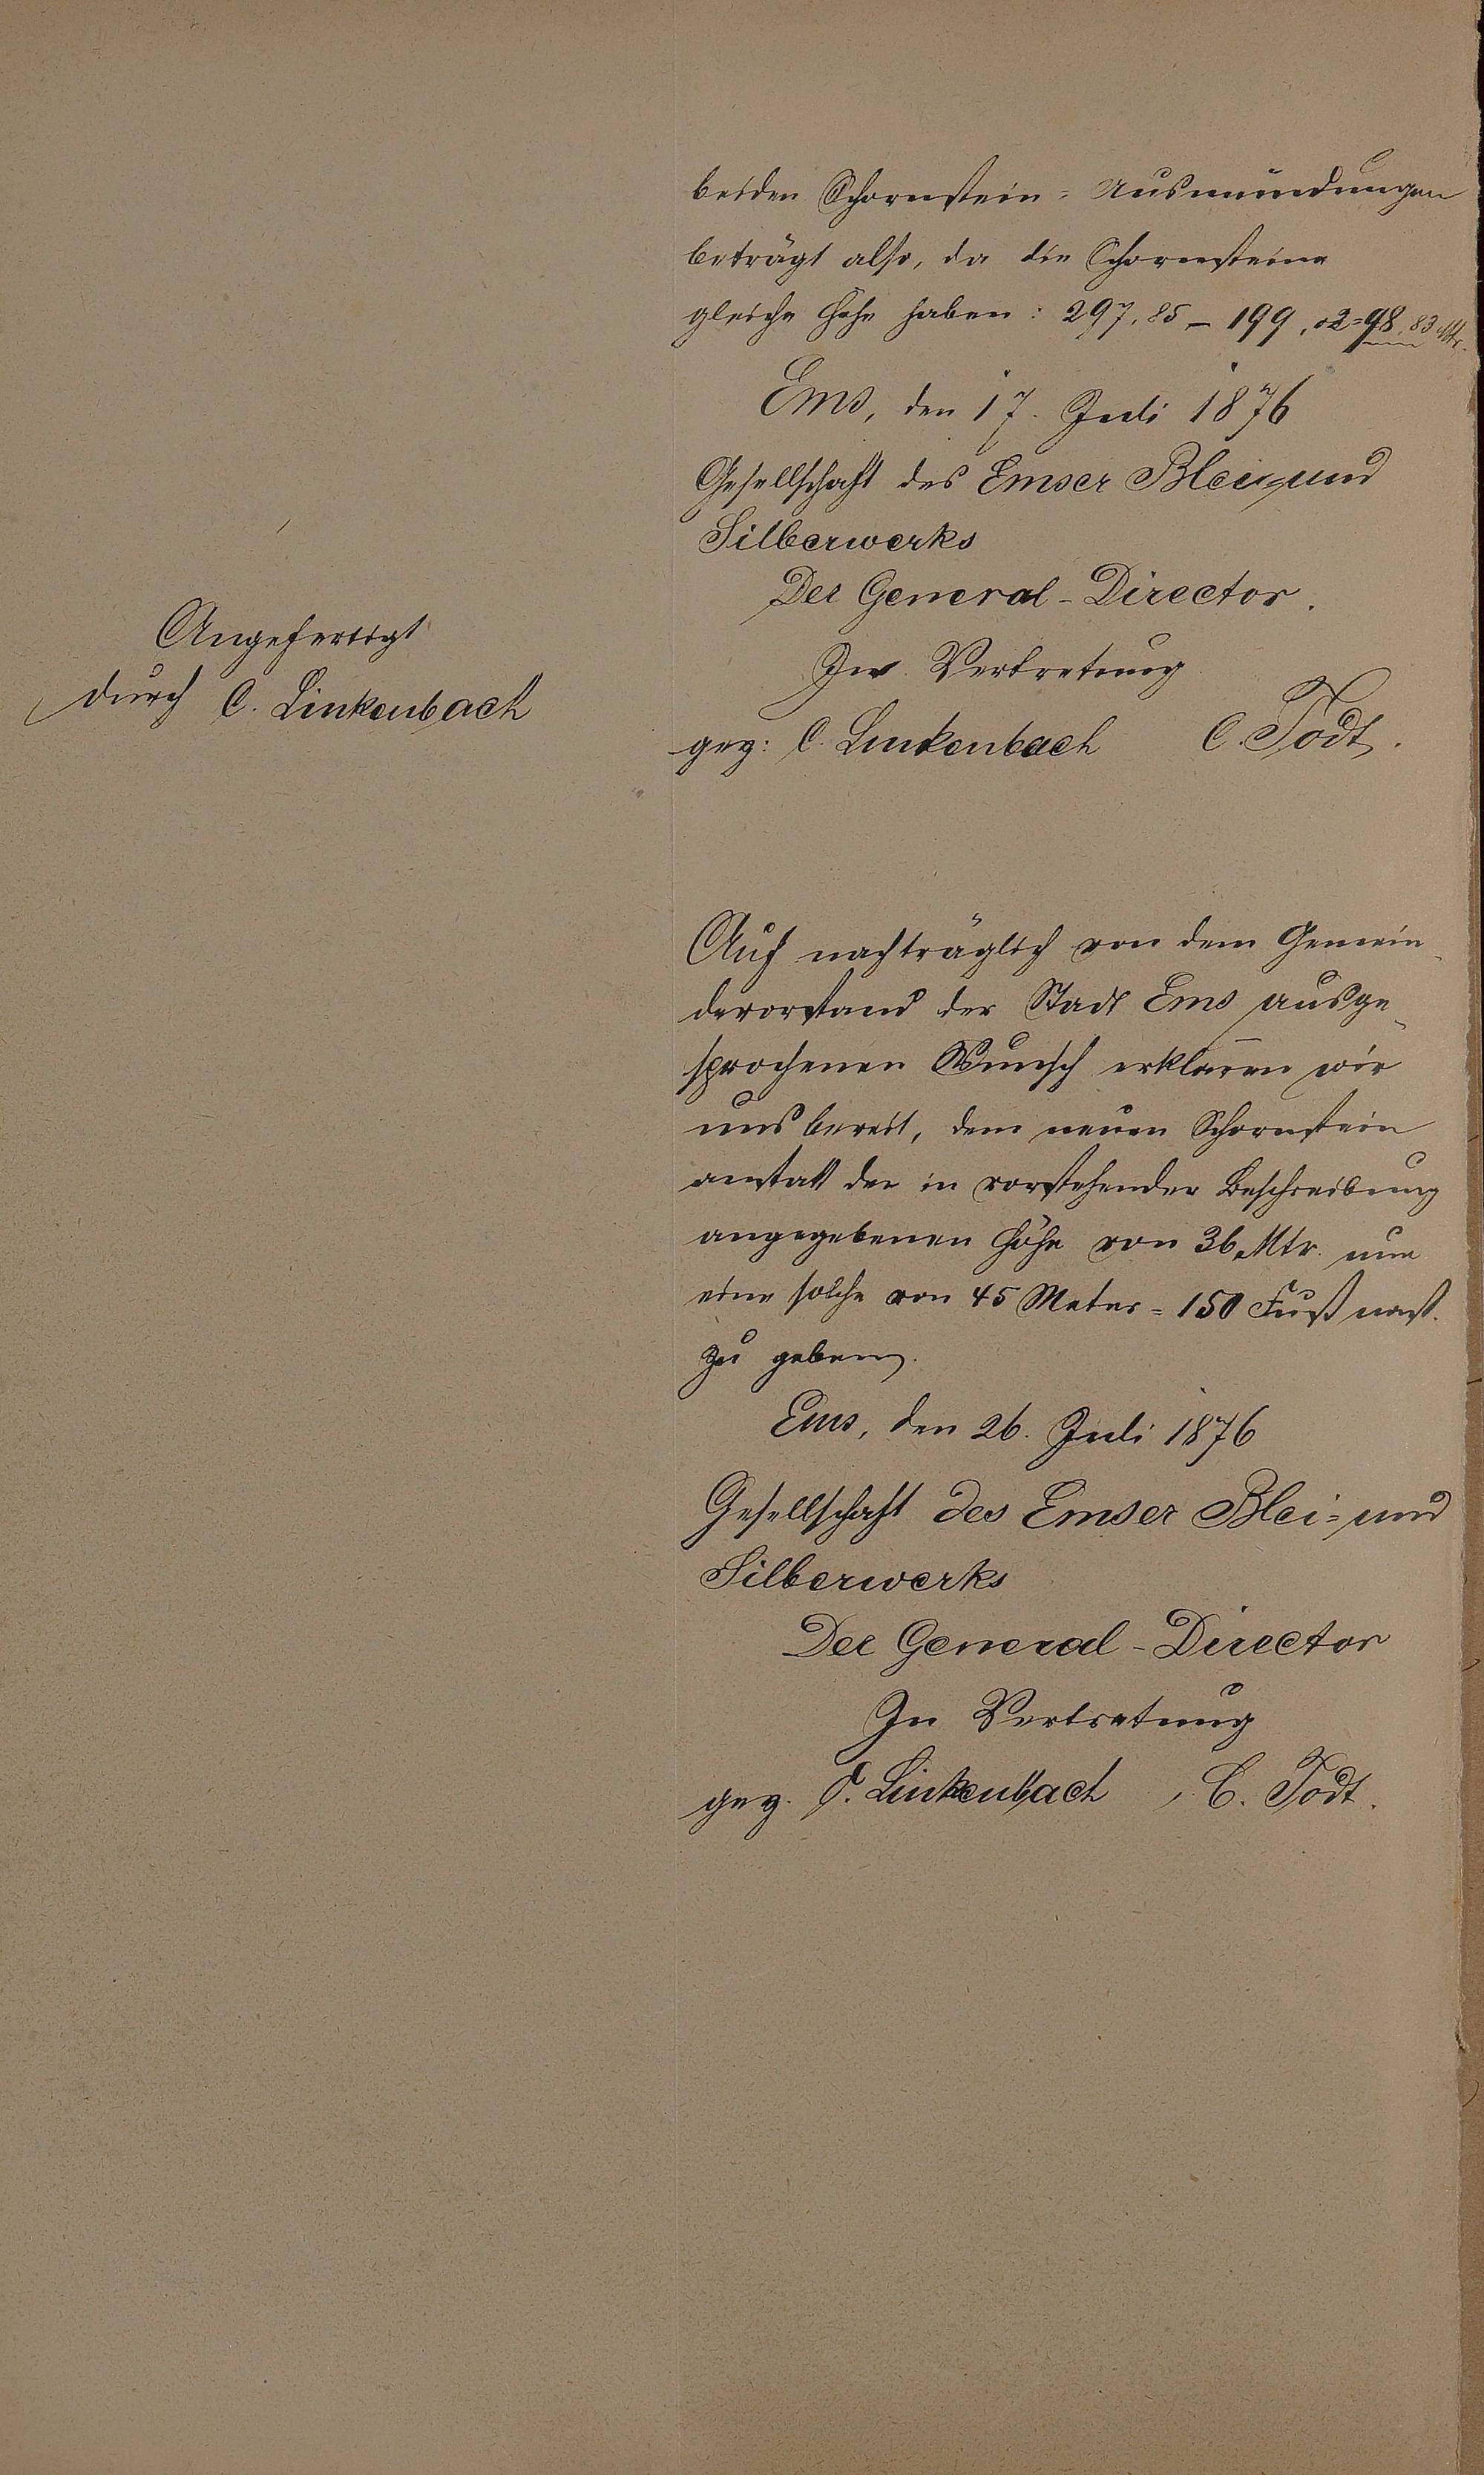 beiden Schornstein-Ausmündungen
beträgt also, da die Schornsteine
gleiche Höhe haben: 297,85 – 199,02=98,83 Mtr.
Ems, den 17. Juli 1876
Gesellschaft des Emser Blei- und
Silberwerks
Der General-Director.
In Vertretung
gez: C. Linkenbach C. Todt.
Angefertigt
durch C. Linkenbach
Auf nachträglich von dem Gemein-
devorstand der Stadt Ems ausge-
sprochenen Wunsch erklären wir
uns bereit, dem neuen Schornstein
anstatt der in vorstehender Beschreibung
angegebenen Höhe von 36 Mtr. nun
eine solche von 45 Meter = 150 Fuß nass.
zu geben.
Ems, den 26. Juli 1876
Gesellschaft des Emser Blei- und
Silberwerks
Der General-Director
In Vertretung
gez. C. Linkenbach, C. Todt.